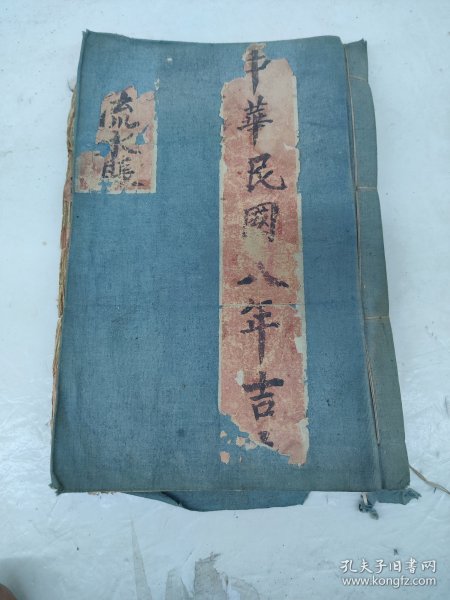 中華民國八年吉
流水賬
孔夫子旧书网
www.kongfz.com